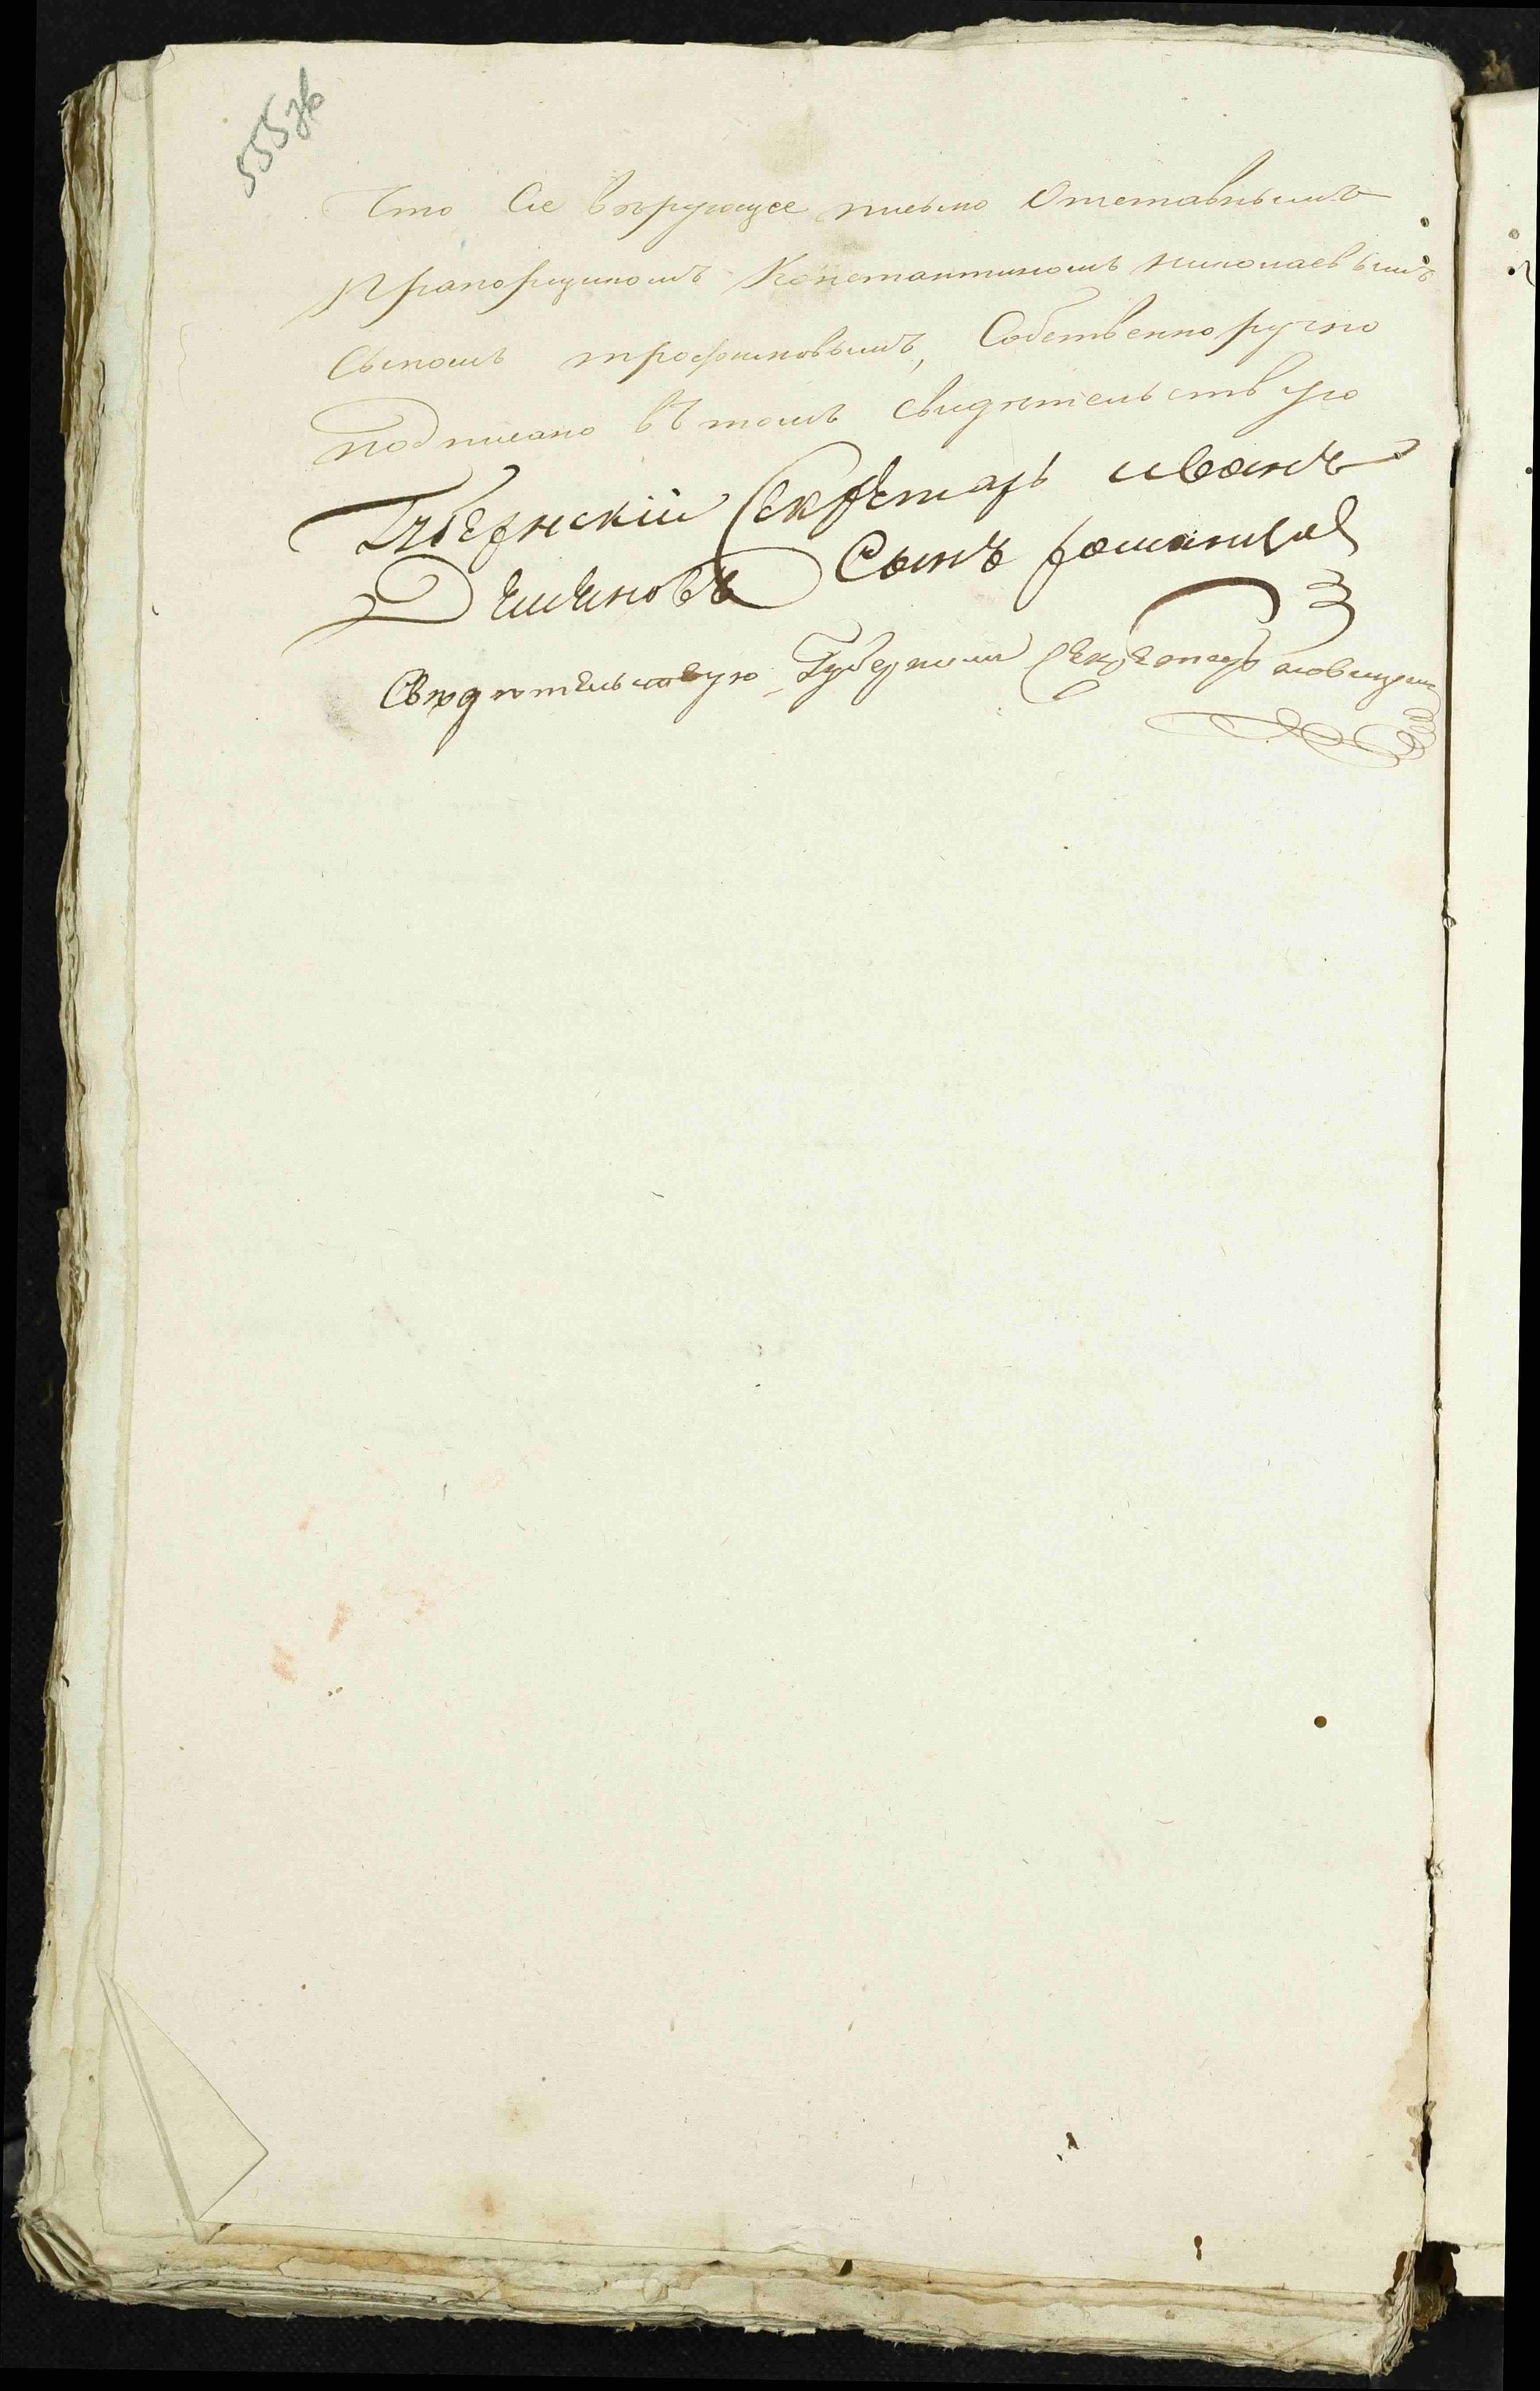 555 об
Что Сие верующее письмо Отставнымъ
Прапорщикомъ Константиномъ Николаевымъ
Сыномъ трофимовымъ, Собственноручно
подписано въ томъ свидѣтельствую
Губернскій Секретарь иванъ
Сынъ
Свидѣтельствую Губернски Секретарь